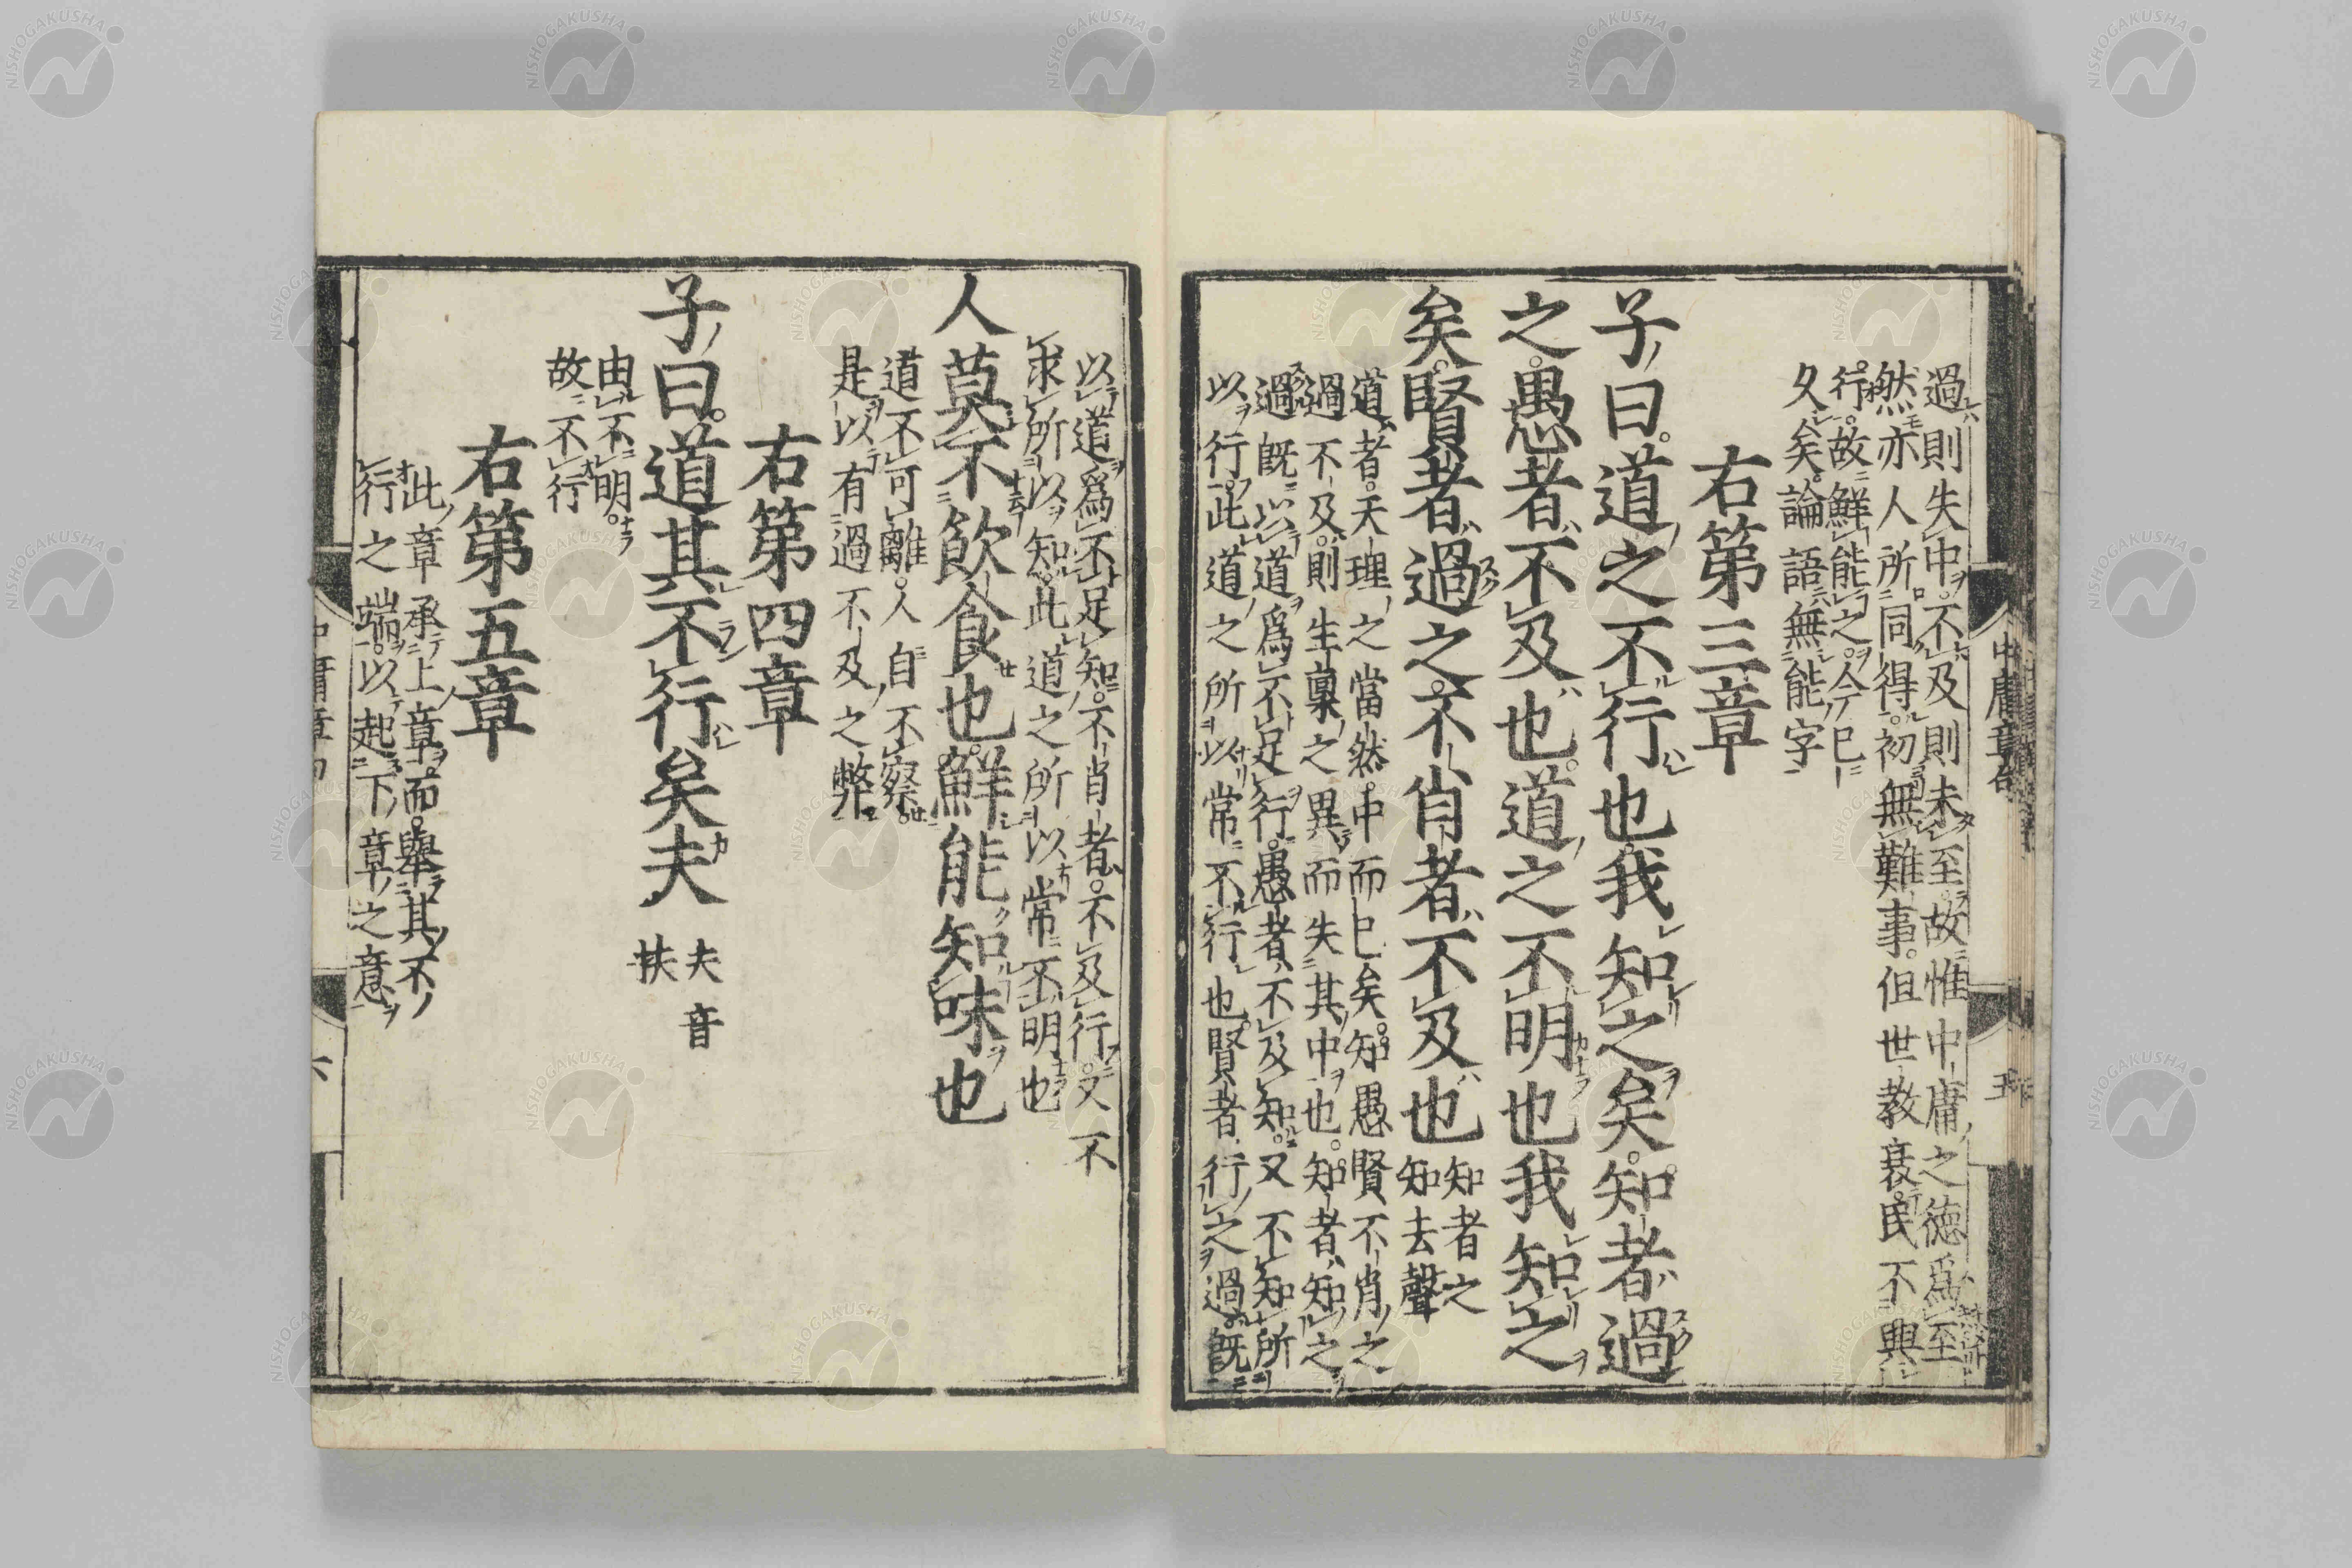 過則失中不及則未至故惟中庸之徳爲至
然亦人所同得初無難事但世教衰民不興
行故鮮能之今已
久矣論語無能字
右第三章
子曰道之不行也我知之矣知者過
之愚者不及也道之不明也我知之
矣賢者過之不肖者不及也
知者之
知去聲
道者天理之當然中而已矣知愚賢不肖之
過不及則生稟之異而失其中也知者知之
過既以道爲不足行愚者不及知又不知所
以行此道之所以常不行也賢者行之過既
中庸章句
五
以道爲不足知不肖者不及行又不
求所以知此道之所以常不明也
人莫不飲食也鮮能知味也
道不可離人自不察
是以有過不及之弊
右第四章
子曰道其不行矣夫
夫音
扶
由不明
故不行
右第五章
此章承上章而舉其不
行之端以起下章之意
六
NISHOGAKUSHA